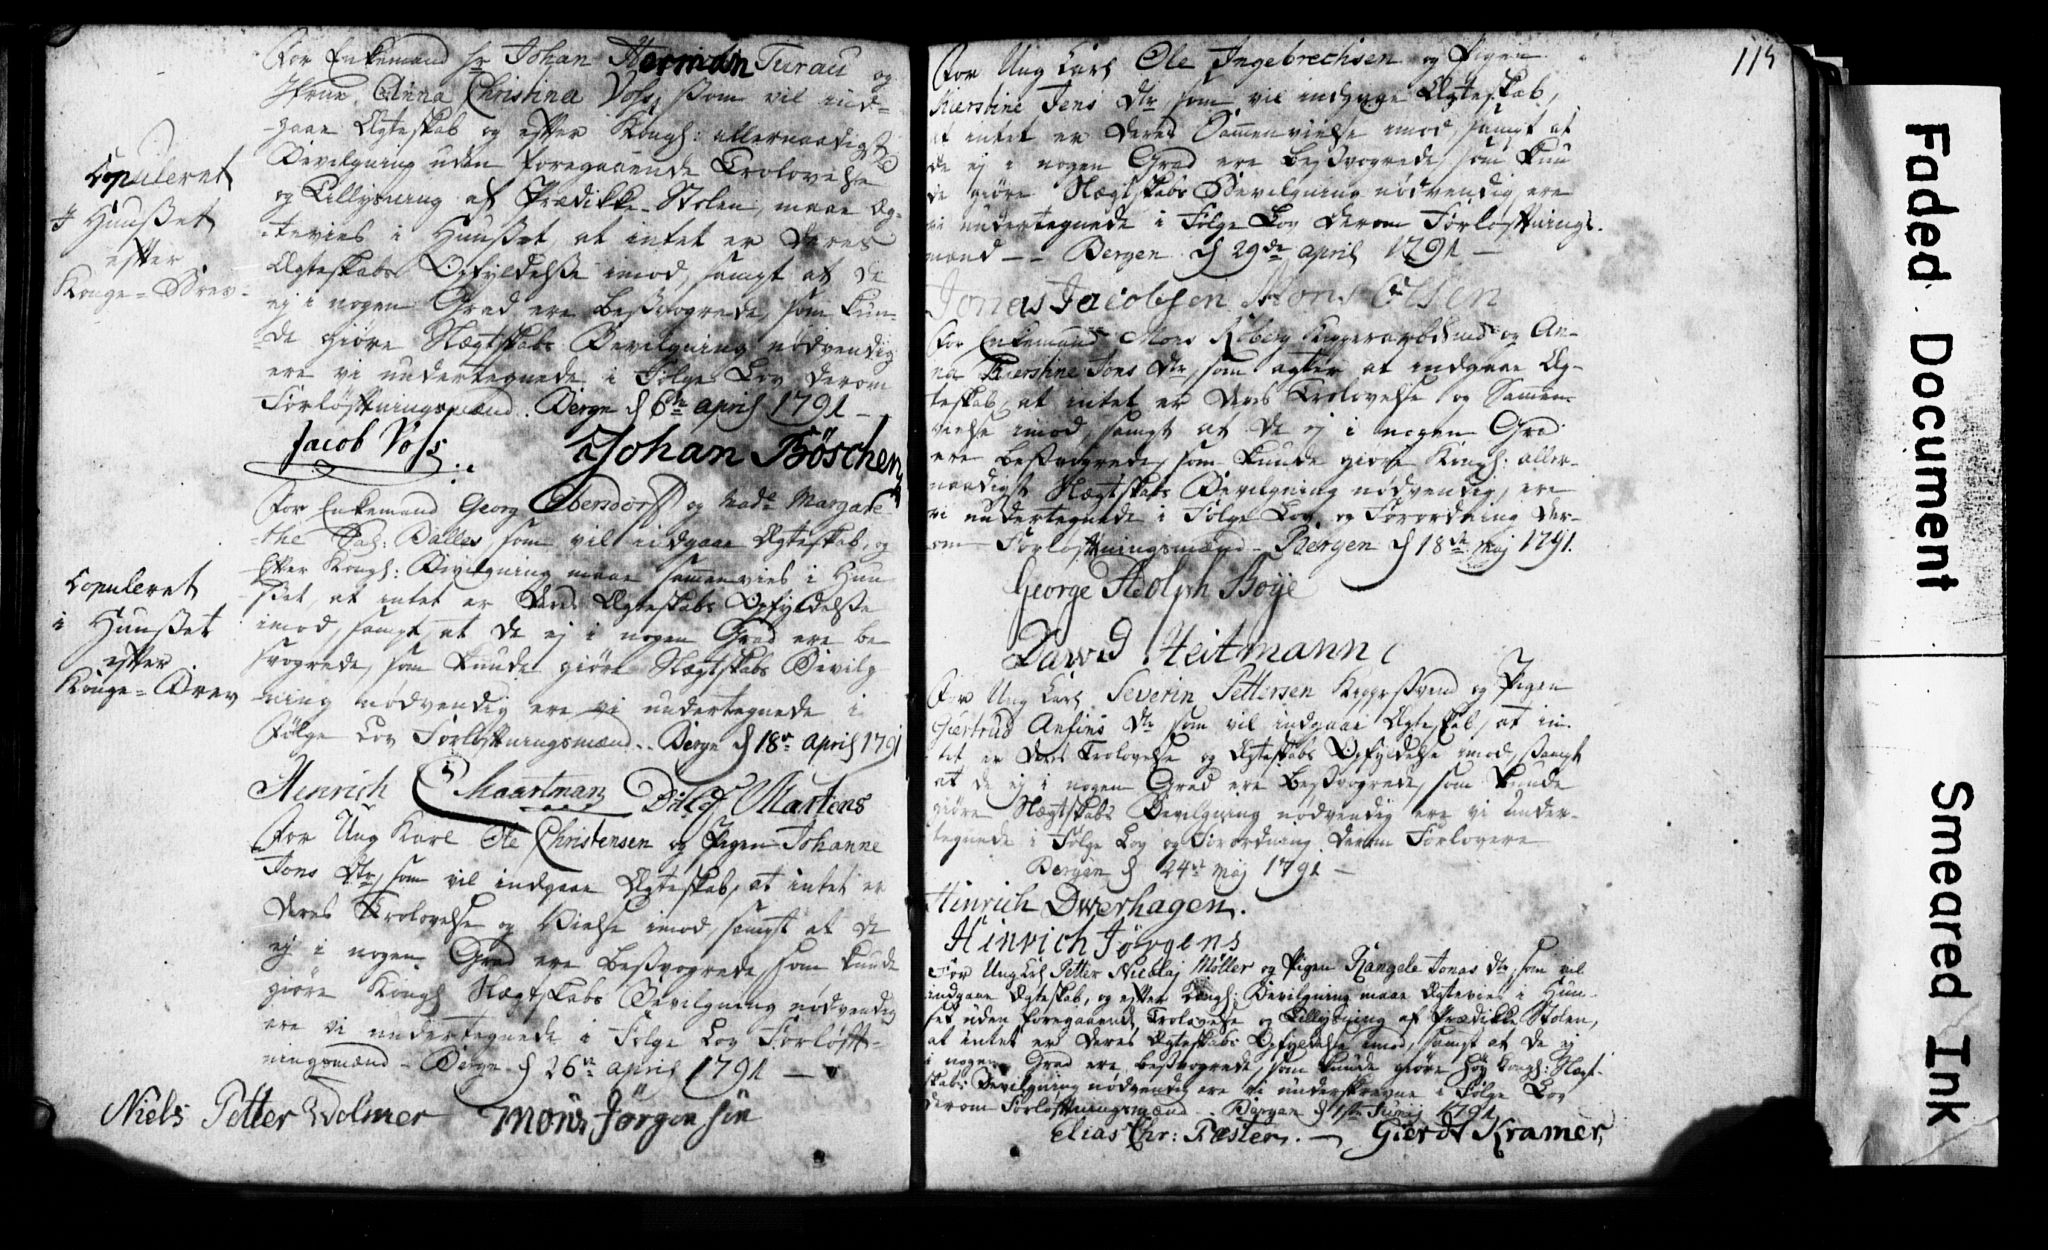 For Enkemand Hr Johan Herman Turau og
Jfrue Anna Christina Voss, som vil ind-
gaae Ægteskab og efter Kongl: allernaadigst
Bevilgning uden foregaaende Trolovelse
og Tillysning af Prædikke-Stolen, maae Æg-
tevies i Huuset, at intet er deres
Ægteskabs Opfyldelse imod, sampt at de
ej i nogen Grad ere besvogrede, som kun-
de giøre Slægtskabs Bevilgning nødvendig
ere vi undertegnede i Følge Lov derom
Forløftningsmænd. Bergen d 6te April 1791 –
Jacob Voss Johan Böschen
Copuleret
I Huuset
efter
Konge-Brev
For Enkemand Georg Ebersdorff og Mad: Margare
the Sal: Balles som vil indgaae Ægteskab, og
efter Kongl: Bevilgning maae sammenvies i Huu
set, at intet er deres Ægteskabs Opfyldelse
imod, sampt, at de ej i nogen Grad ere be
svogrede, som kunde giøre Slægtskabs Bevilg
ning nødvendig ere vi undertegnede i
Følge Lov Forløftningsmænd.. Bergen d 18de April 1791
Copuleret
i Huuset
efter
Konge-Brev
Hinrich Schaartman Ditlef Martens
For Ung Karl Ole Christensen og Pigen Johanne
Jons Dtr, som vil indgaae Ægteskab, at intet er
deres Trolovelse og Vielse imod, sampt at de
ej i nogen Grad ere besvogrede, som kunde
giøre Kongl Slægtskabs Bevilgning nødvendig
ere vi undertegnede i Følge Lov Forløft-
ningsmænd – Bergen d 26de April 1791 –
Niels Petter Wolmer Mons Jørgensen
115
For Ung Carl Ole Ingebrechtsen og Pigen
Kierstine Jens Dtr som vil indgaae Ægteskab,
at intet er deres Sammenvielse imod, sampt at
de ej i nogen Grad ere besvogrede, som kun
de giøre Slægtskabs Bevilgning nødvendig ere
vi undertegnede i Følge Lov derom Forløftnings-
mænd -- Bergen d 29de April 1791 –
Jonas Jacobsen Mons Olsen
For Enkemand Mons Kyperarbeidsmd og An-
na Kierstine Jons Dtr, som agter at indgaae Æg-
teskab, at intet er deres Trolovelse og Sammen-
vielse imod, sampt at de ej i nogen Grad
ere besvogrede, som kunde giøre Kongl: aller-
naadigst Slægtskabs Bevilgning nødvendig, ere
vi undertegnede i Følge Lov og Forordning der-
om Forløftningsmænd – Bergen d 18de Maj 1791.
George Adolph Boÿe
David Heitmann
For Ung Carl Severin Pettersen Kypersvend og Pigen
Giertrud Anfins Dtr som vil indgaae Ægteskab, at in
tet er deres Trolovelse og Ægteskabs Opfyldelse imod, sampt
at de ej i nogen Grad ere besvogrede, som kunde
giøre Slægtskabs Bevilgning nødvendig ere vi under-
tegnede i Følge Lov og Forordning derom Forlovere
Bergen d 24de Maj 1791 –
Hinrich Dwerhagen.
Hinrich Jørgens
For Ung Carl Petter Nicolaj Møller og Pigen Rangele Jonas Dtr, som vil
indgaae Ægteskab, og efter Kongl: Bevilgning maae Ægtevies i Huu-
set uden foregaaende Trolovelse og Tillysning af Prædikke-Stolen,
at intet er deres Ægteskabs Opfyldelse imod, sampt at de ej
i nogen Grad ere besvogrede, som kunde giøre høy Kongl: Slægt-
skabs Bevilgning nødvendig ere vi underskrevne i Følge Lov
derom Forløftningsmænd – Bergen d 1ste Junij 1791
Elias Chr: Pæster. – Gierdt Kramer,
Faded Document
Smeared Ink